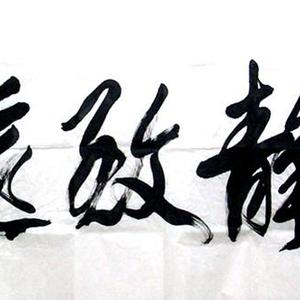 静致远